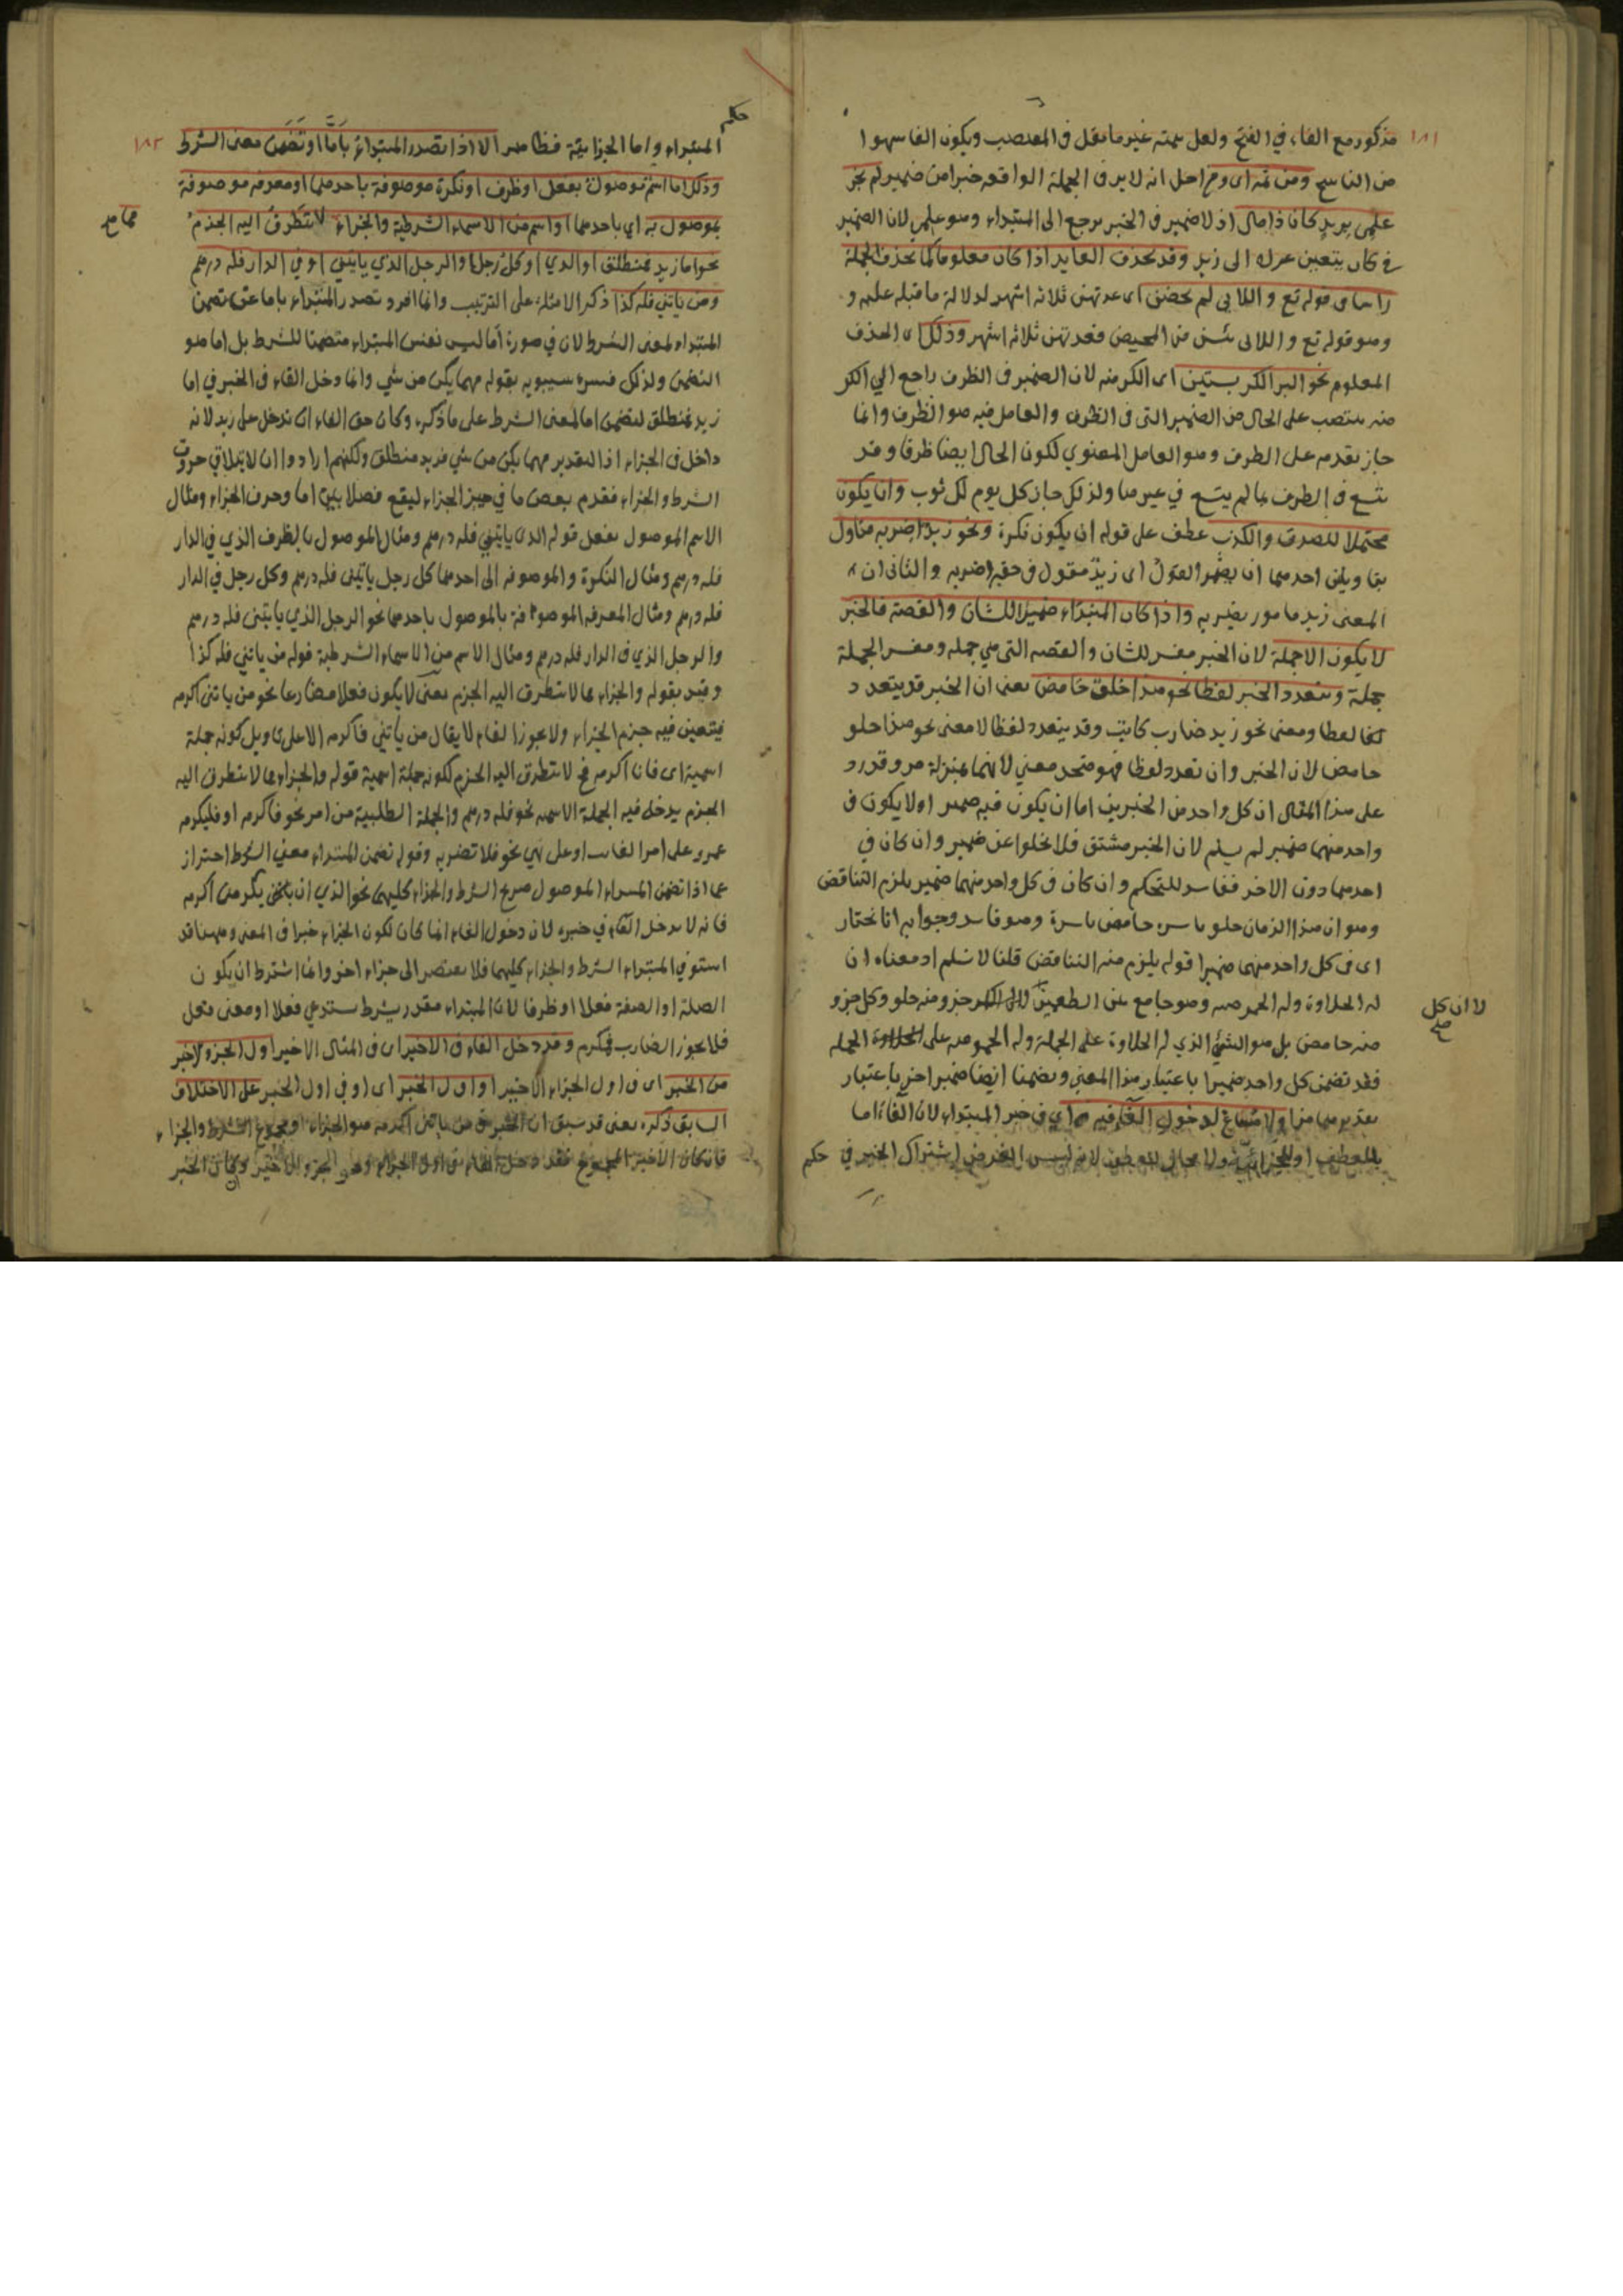 ١٨١
مذكور مع الفاء في الفتح ولعل سمته غير ما نقل في المقتصب ويكون الفا سهوا
من الناسخ ومن ثمة اى ومن اجل انه لا بد في الجملة الواقعة خبرا من ضمير لم يجز
علمى بزيد كان ذا مال اذ لا ضمير في الخبر يرجع الى المبتداء وهو علمي لان الضمير
في كان يتعين عوده الى زيد وقد يحذف العايد اذا كان معلوما كما يحذف الجملة
راسا في قوله تع واللائى لم يحضن اى عدتهن ثلاثة اشهر لدلالة ما قبله عليه و
وهو قوله تع واللائى يئسن من المحيض فعدتهن ثلاثة اشهر وذلك اى الحذف
المعلوم نحو البر الكر بستين اى الكر منه لان الضمير في الظرف راجع الي الكر
منه ينتصب على الحال من الضمير التى في الظرف والعامل فيه هو الظرف وانما
جاز تقدمه على الظرف وهو العامل المعنوي لكون الحال ايضا ظرفا وقد
يتسع في الظرف ما لم يتسع في غيرها ولذلك جاز كل يوم لك ثوب وان يكون
محتملا للصدق والكذب عطف على قوله ان يكون نكرة ونحو زيد اضربه متاول
بتاويلين احدهما ان يضمر القول اى زيد مقول في حقه اضربه والثانى ان
المعنى زيد مامور بضربه واذا كان المبتداء ضمير الشان والقصة فالخبر
لا يكون الا جملة لان الخبر مفسر للشان والقصه التى هي جمله ومفسر الجملة
جملة ويتعدد الخبر لفظا نحو هذا حلو حامض يعنى ان الخبر قد يتعدد
لفظا ومعنى نحو زيد ضارب كاتب وقد يتعدد لفظا لا معنى نحو هذا حلو
حامض لان الخبر وان تعدد لفظا فهو متحد معني لانهما بمنزلة مز وقد رد
على هذا المقال ان كل واحد من الخبرين اما ان يكون فيه ضمير اولا يكون في
واحد منهما ضمير لم يسلم لان الخبر مشتق فلا يخلوا عن ضمير وان كان في
احدهما دون الاخر ففاسد للتحكم وان كان في كل واحد منهما ضمير يلزم التناقض
وهو ان هذا الزمان حلو باسره حامض باسره وهو فاسد وجوابه انا نختار
اى في كل واحد منهما ضميرا قوله يلزم منه التناقض قلنا لا نسلم اذ معناه ان
له الحلاوة وله الحموضه وهو جامع بين الطعمين جزو منه حلو وكل جزو
لا ان كل
صح
منه حامض بل هو الشئ الذي له الحلاوة على الجملة وله الحموضه على الجمله
فقد تضمن كل واحد ضميرا باعتبار هذا المعنى وتضمنا ايضا ضميرا اخر باعتبار
تقديرهما مزا ولا مساغ لدخول الفاء فيه اى في خبر المبتداء لان الفاء اما
للعطف او للجزائية ولا مجال للعطف لانه ليس الغرض اشتراك الخبر في حكم
حكم
١٨٢
المبتداء واما الجزائية فظاهر الا اذا تصدر المبتداء بامّا او تضمن معنى الشرط
وذلك اما اسم موصول بفعل او ظرف او نكرة موصوفة باحدهما او معرفه موصوفة
بموصول به اي باحدهما او اسم من الاسماء الشرطية والجزاء لا يتطرق اليه الجزم
مما صح
نحو اما زيد فمنطلق او الذي او كل رجل او الرجل الذي ياتينى او في الدار فله درهم
ومن ياتني فله كذا ذكر الامثلة على الترتيب وانما افرد تصدر المبتداء باما عن تضمن
المبتداء لمعنى الشرط لان في صورة اما ليس نفس المبتداء متضمنا للشرط بل اما هو
التضمن ولذلك فسره سيبويه بقوله مهما يكن من شي وانما دخل الفاء في الخبر في اما
زيد فمنطلق لتضمن اما لمعنى الشرط على ما ذكره وكان حق الفاء ان تدخل على زيد لانه
داخل في الجزاء اذ التقدير مهما يكن من شي فزيد منطلق ولكنهم ارادوا ان لا يتلاقي حروف
الشرط والجزاء فقدم بعض ما في حيز الجزاء ليقع فصلا بين اما وحرف الجزاء ومثال
الاسم الموصول بفعل قوله الذى ياتيني فله درهم ومثال الموصول بالظرف الذي في الدار
فله درهم ومثال النكرة والموصوفه الى احدهما كل رجل ياتينى فله درهم وكل رجل في الدار
فله درهم ومثال المعرفه الموصوفة بالموصول باحدهما نحو الرجل الذي ياتينى فله درهم
والرجل الذي في الدار فله درهم ومثال الاسم من الاسماء الشرطية قوله من ياتني فله كذا
وقيد بقوله والجزاء مما لا يتطرق اليه الجزم يعنى لا يكون فعلا مضارعا نحو من ياتنى اكرمه
فيتعين فيه جزم الجزاء ولا يجوز الفاء لا يقال من ياتني فاكرمه الا على تاويل كونه جملة
اسمية اى فانا اكرمه فح لا يتطرق اليه الجزم لكونه جملة اسمية قوله والجزاء مما لا يتطرق اليه
الجزم يدخل فيه الجملة الاسميه نحو فله درهم والجملة الطلبية من امر نحو فاكرمه او فليكرمه
عمرو على امر الغائب او على نهي نحو فلا تضربه وقوله تضمن المبتداء معني الشرط احتراز
عما اذا تضمن المبتداء الموصول صريح الشرط والجزاء كليهما نحو الذي ان ياتني يكرمنى اكرمه
فانه لا يدخل الفاء في خبره لان دخول الفاء انما كان لكون الجزاء خبرا في المعنى وههنا قد
استوفي المبتداء الشرط والجزاء كليهما فلا يفتقر الى جزاء اخر وانما اشترط ان يكون
الصلة او الصفة فعلا او ظرفا لان المبتداء مقدر بشرط يستدعي فعلا او معنى فعل
فلا يجوز الضارب فمكرم وقد دخل الفاء في الاخير اى في المثال الاخير اول الجزء الاخير
من الخبر اى في اول الجزاء الاخير او اول الخبر اى او في اول الخبر على الاختلاف
السابق ذكره يعنى قد سبق ان الخبر في من ياتنى اكرمه هو الجزاء او مجموع الشرط والجزاء
فان كان الاخير المجموع فقد دخل الفاء في اول الجزاء وهو الجزو الاخير وكان الخبر